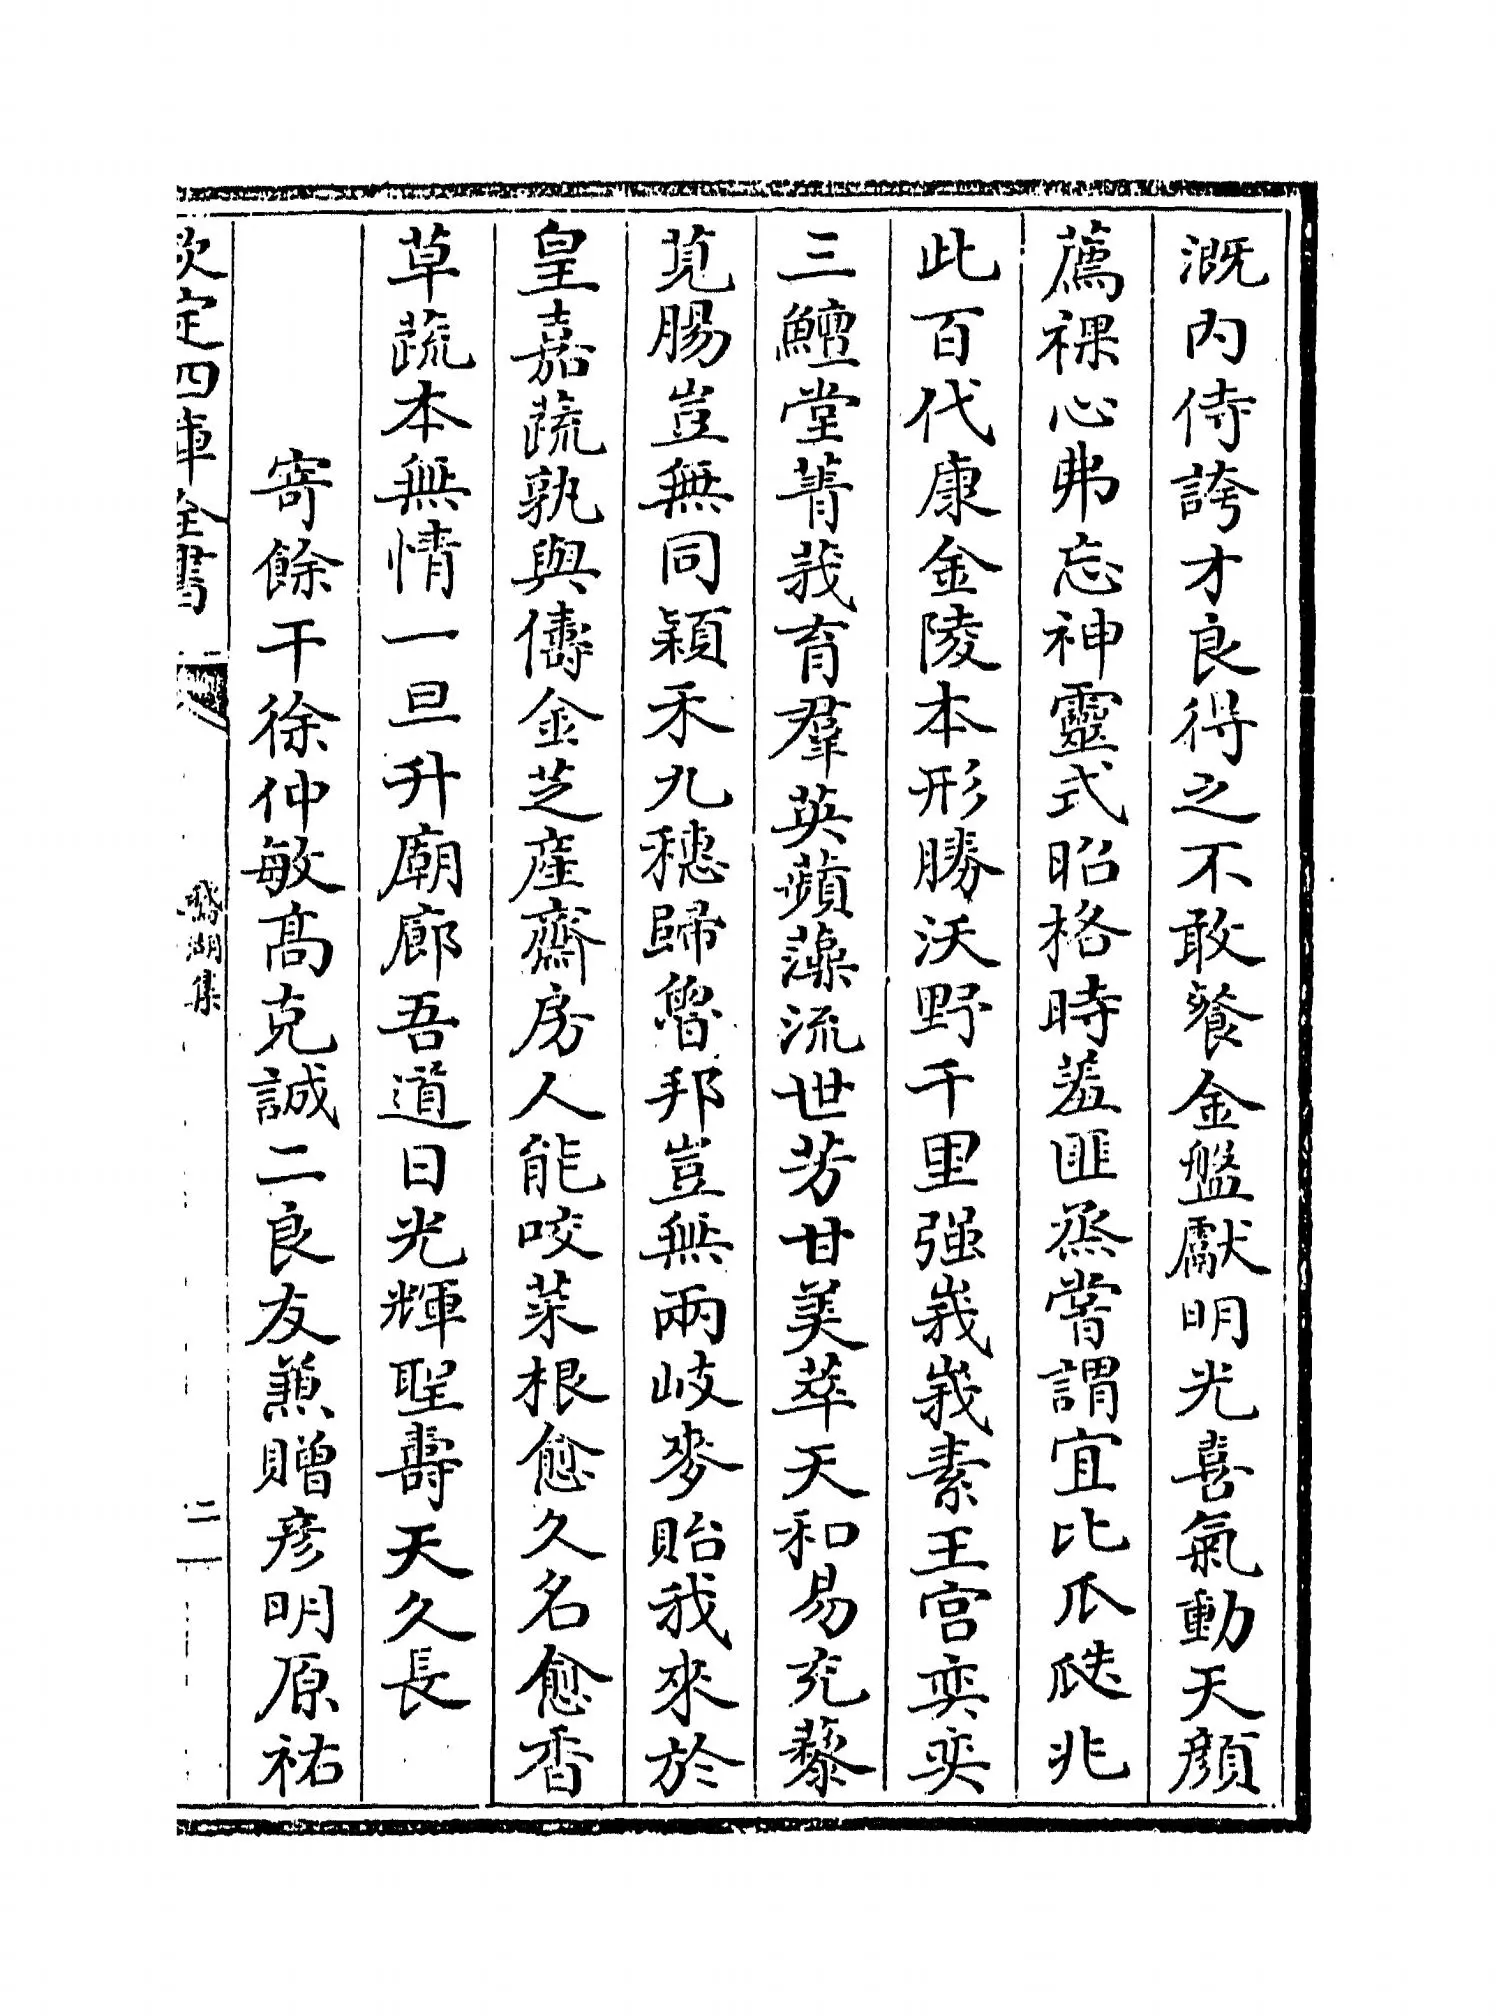 溉内侍誇才良得之不敢餐金盤獻明光喜氣動天顔
薦祼心弗忘神靈式昭格時羞匪烝嘗謂宜比瓜瓞兆
此百代康金陵本形勝沃野千里强峩峩素王宫奕奕
三鱣堂菁莪育羣英蘋藻流世芳甘美萃天和易充藜
莧腸豈無同穎禾九穗歸魯邦豈無兩岐麥貽我來於
皇嘉蔬孰與儔金芝産齋房人能咬菜根愈久名愈香
草蔬本無情一旦升廟廊吾道日光輝聖壽天久長
寄餘干徐仲敏高克誠二良友兼贈彦明原祐
欽定四庫全書
鵝湖集
二